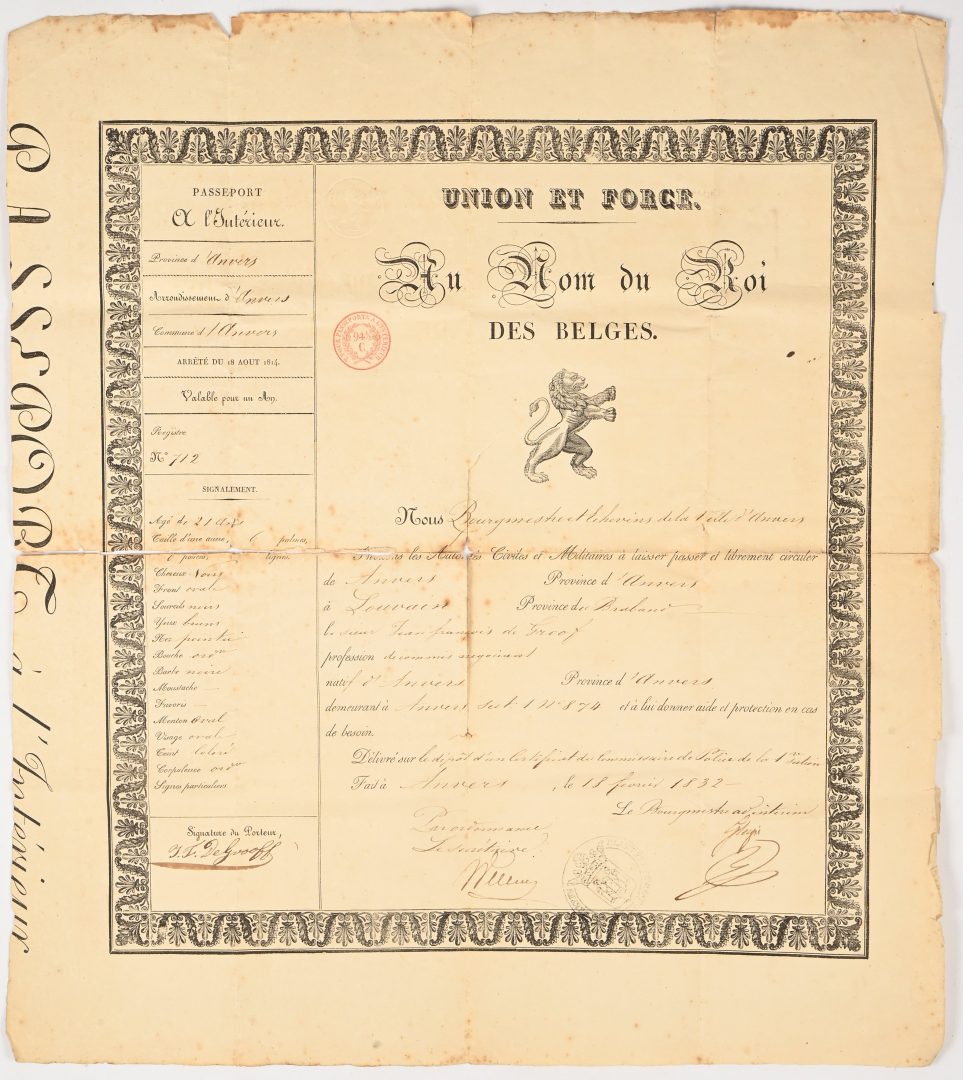 PASSEPORT À l'Intérieur
PASSEPORT
A l'Intérieur.
Province d'Anvers
Arrondissement d'Anvers
Commune d'Anvers
ARRÊTÉ DU 18 AOUT 1814.
Valable pour un An.
Registre
N° 712
SIGNALEMENT.
Agé de 21 ans
Taille d'une aune, 6 palmes,
6 pouces, lignes.
Cheveux Noirs
Front ovale
Sourcils noirs
Yeux bruns
Nez pointu
Bouche ord.re
Barbe noire
Moustache —
Favoris —
Menton Oval
Visage ovale
Teint Coloré
Corpulence ord.re
Signes particuliers
Signature du Porteur,
J. F. De Grooff
UNION ET FORCE.
Au Nom du Roi
DES BELGES.
94
C
Nous Bourgmestre et Echevins de la Ville d'Anvers
Prions les Autorités Civiles et Militaires à laisser passer et librement circuler
de Anvers Province d'Anvers
à Louvain Province de Braband
le sieur Jean françois de Groof
profession de commis negociant
natif d'Anvers Province d'Anvers
demeurant à Anvers Sect. 1 N° 874 et à lui donner aide et protection en cas
de besoin.
Délivré sur le dépôt d'un Certificat du Commissaire de Police de la 1e Section
Fait à Anvers, le 18 fevrier 1832
Le Bourgmestre ad interim
Par ordonnance
Le Secretaire